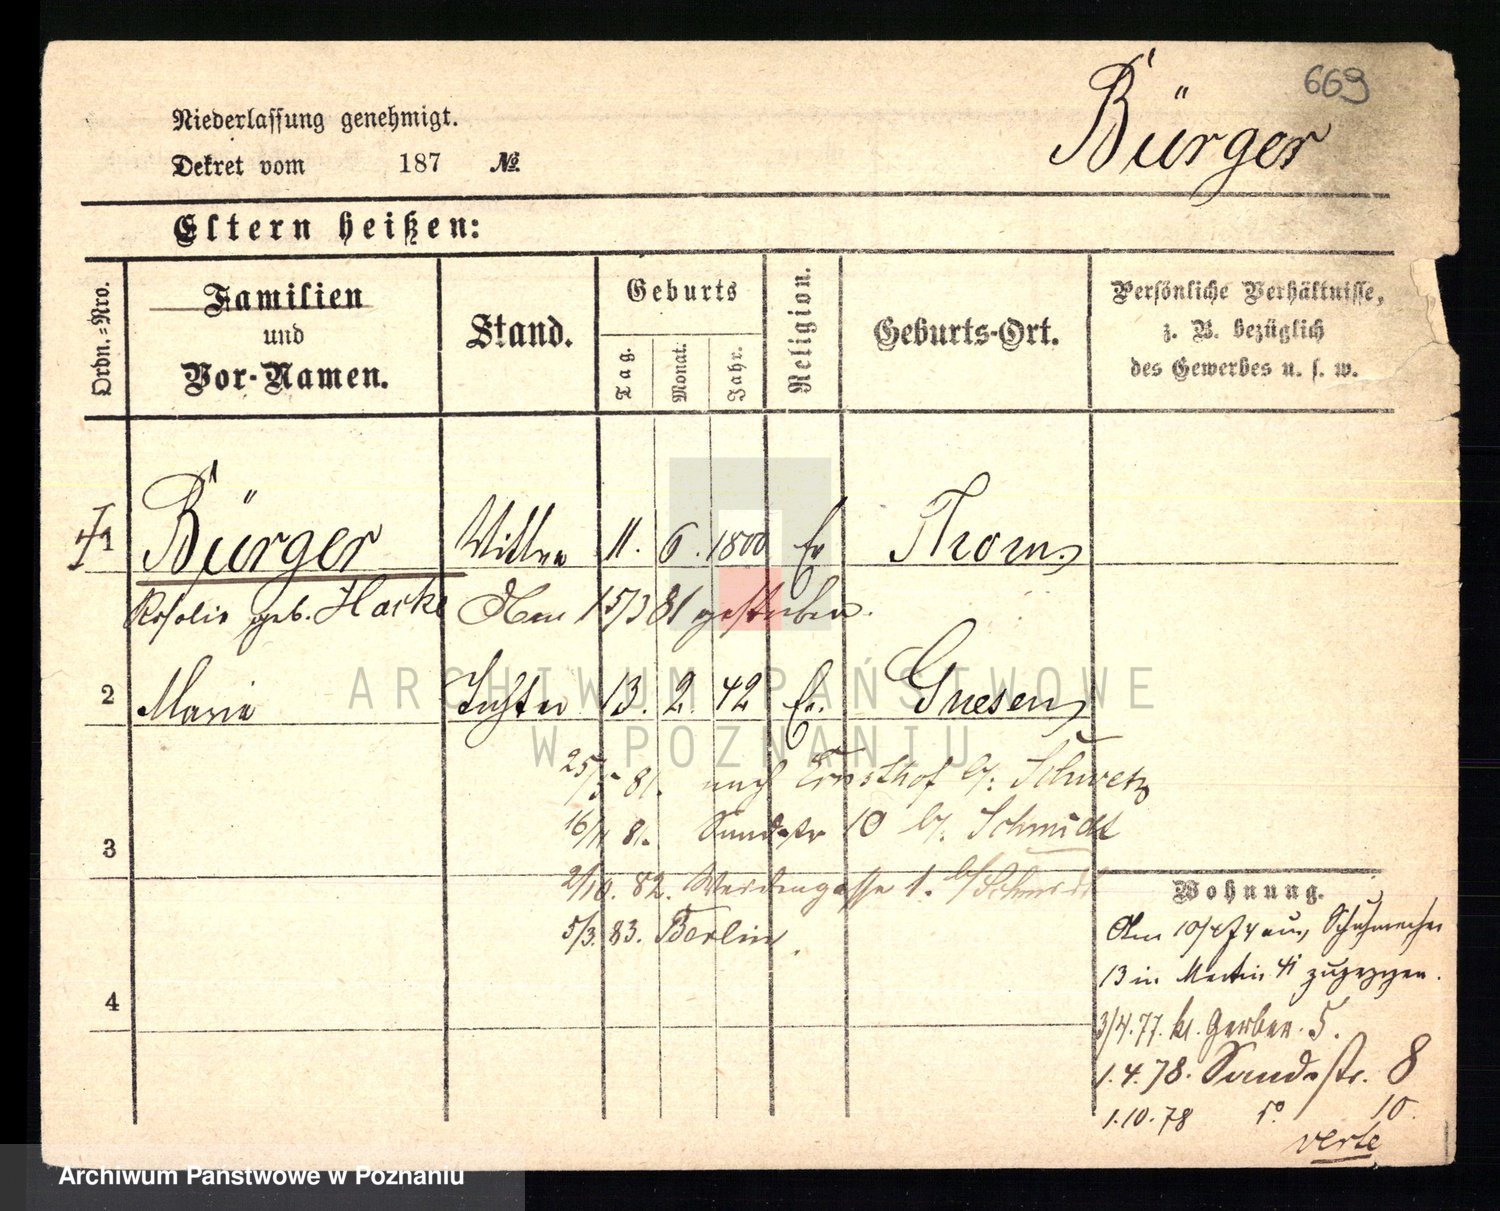 669
Bürger
Niederlassung genehmigt.
Dekret vom 187 №
Eltern heißen:
Ordn.-Nro.
Familien
und
Vor-Namen.
Stand.
Geburts
Tag.
Monat.
Jahr.
Religion.
Geburts-Ort.
Persönliche Verhältnisse,
z. B. bezüglich
des Gewerbes u. s. w.
1 Bürger Wittwe 11. 6. 1800 Ev Thorn
Rosalie geb. Hacke Am 15/3 81 gestorben.
2 Maria Tochter 13. 2. 42 Ev. Gnesen
25/5 81. nach Ernsthof b/. Schwetz
16/11 81. Sandstr 10 b/. Schmidt
3
2/10. 82. Weidengasse 1. b/ Schmidt
5/3. 83. Berlin.
4
Wohnung.
Am 10/4 74 aus Schuhmacher
13 in Martin 41 zugezogen.
3/4. 77. kl. Gerber. 5.
1.4.78. Sandstr. 8
1.10.78 10.
verte
ARCHIWUM PAŃSTWOWE
W POZNANIU
Archiwum Państwowe w Poznaniu